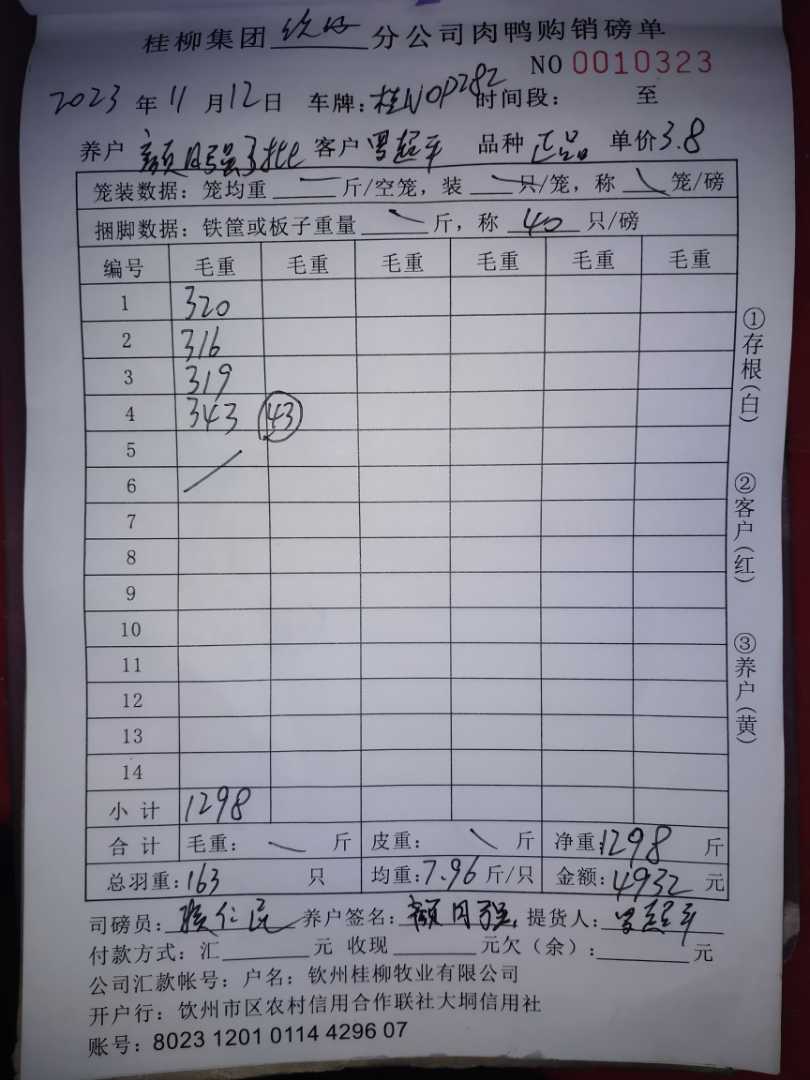 桂柳集团 钦州 分公司肉鸭购销磅单
NO 0010323
2023 年 11 月 12 日 车牌：桂N0P282 时间段： 至
养户 颜月强3批 客户 罗超平 品种 正品 单价3.8
笼装数据：笼均重 斤/空笼，装 只/笼，称 笼/磅
捆脚数据：铁筐或板子重量 斤，称 40 只/磅
编号 毛重 毛重 毛重 毛重 毛重 毛重
1 320
2 316
3 319
4 343 43
5
6
7
8
9
10
11
12
13
14
小 计 1298
合 计 毛重： 斤 皮重： 斤 净重：1298 斤
总羽重：163 只 均重：7.96 斤/只 金额：4932 元
司磅员： 仁 养户签名：颜月强 提货人：罗超平
付款方式：汇 元 收现 元欠（余）： 元
公司汇款帐号：户名：钦州桂柳牧业有限公司
开户行：钦州市区农村信用合作联社大垌信用社
账号：8023 1201 0114 4296 07
①存根（白）
②客户（红）
③养户（黄）